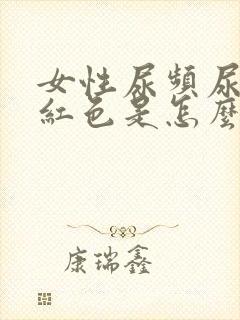 女性尿頻尿
紅色是怎麼
康瑞鑫